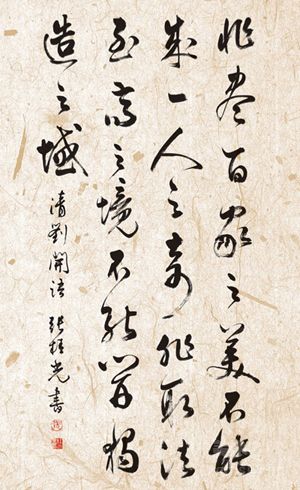 非盡百家之美不能
成一人之奇非取法
至高之境不能開獨
造之域
清劉開語 張光書